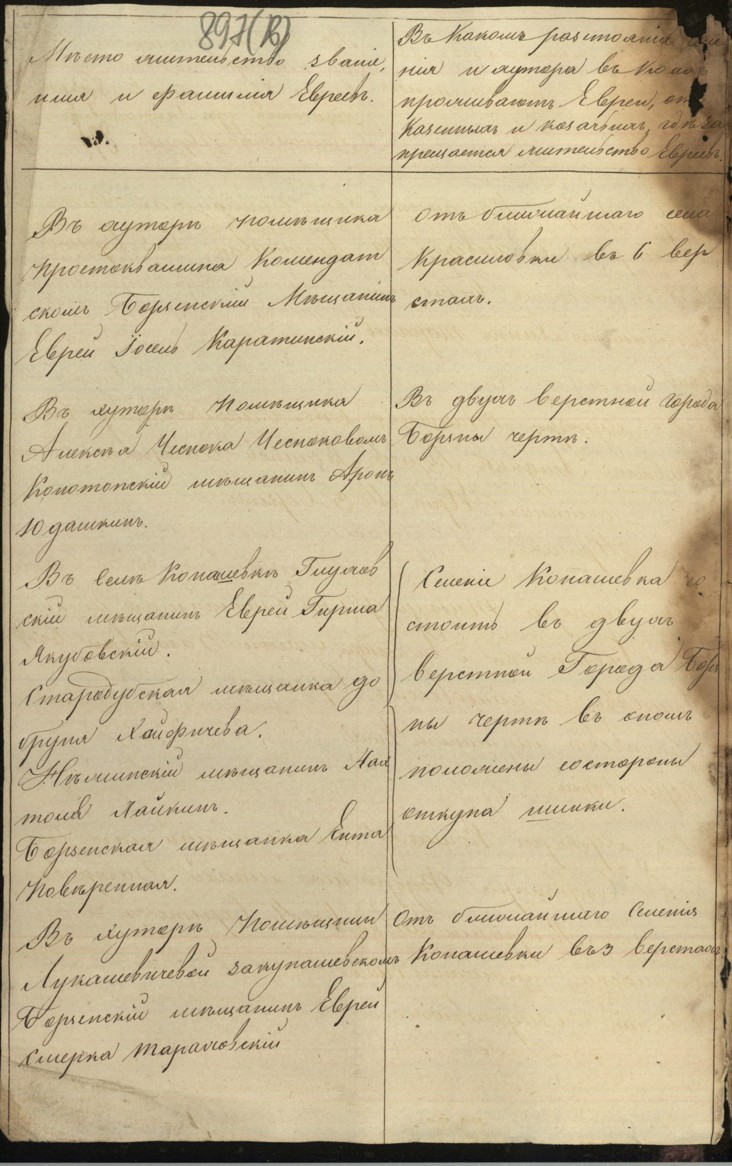 897(В)
Мѣсто жительство званіе,
имя и фамилія Евреевъ.
Въ какомъ разстояніи
нія и хутора въ коемъ
проживаютъ Евреи, отъ
казенныхъ и козачьихъ, гдѣ за
прещается жительство Евреевъ.
Въ хуторѣ помѣщика
Простоквашина Комендат
скомъ Борзенскій Мѣщанинъ
Еврей Іосель Каратинскій.
отъ ближайшаго села
Красиловки въ 6 вер
стахъ.
Въ хуторѣ Помѣщика
Алексѣя Чеснока Чесноковомъ
Конотопскій мѣщанинъ Аронъ
Юдашкинъ.
Въ двухъ верстной города
Борзны чертѣ.
Въ селѣ Копашевкѣ Глухов
скій мѣщанинъ Еврей Гирша
Якубовскій.
Стародубская мѣщанка до
бруня Хайфичева.
Нѣжинскій мѣщанинъ
Хайкинъ.
Борзенская мѣщанка Ента
Повѣренная.
Селеніе Копашевка со
стоитъ въ двухъ
верстной Города Борз
ны чертѣ въ ономъ
положены со стороны
откупа шинки.
Въ хуторѣ Помѣщицы
Лукашевичевой закупашевскомъ
Борзенскій мѣщанинъ Еврей
Смерка Тараховскій
Отъ ближайшаго Селенія
Копашевки въ 3 верстахъ